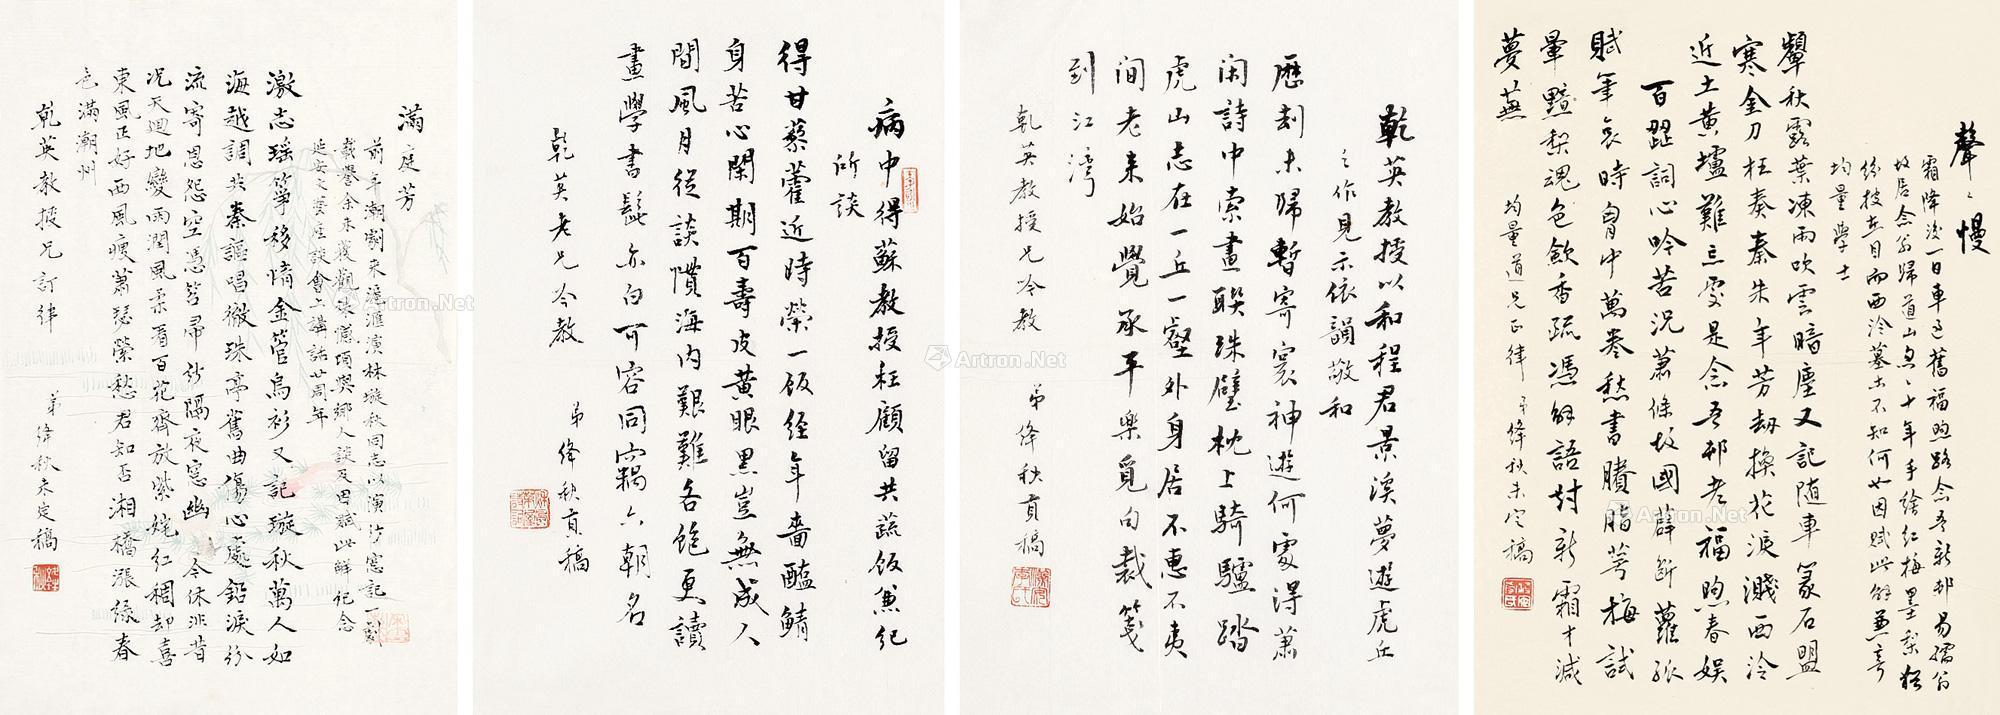 聲聲慢
霜降後一日車過舊福煦路念吾新邨易孺翁
故居念翁歸道山匆匆十年手繪紅梅墨梨猶
紛披在目而西泠墓木不知何如因賦此解兼寄
均量學士
顰秋露葉凍雨吹雲暗塵又記隨車篆石盟
寒金刀枉奏秦朱年芳劫換花淚濺西泠
近土黃壚難忘處是念吾邨老福煦春娛
百囍詞心吟苦況蕭條故國薜斷蘿疏
賦筆哀時胷中萬卷愁書賸脂萼梅試
暈黟梨魂色歛香疏憑解語討新霜才減
夢蕪
均量道兄正律 弟絳秋未定稿
乾英教授以和程君景溪夢遊虎丘
之作見示依韻敬和
歷刦未歸暫寄寰神遊何處得蕭
閑詩中索畫聯珠璧枕上騎驢踏
虎山志在一丘一壑外身居不惠不夷
間老來始覺承平樂覓句裁箋
到江灣
乾英教授兄吟教 弟絳秋貢稿
病中得蘇教授枉顧留共蔬飯兼紀
所談
得甘藜藿近時榮一飯經年嗇醢鯖
身苦心閑期百壽皮黃眼黑豈無成人
間風月從談慣海內艱難各飽更讀
畫學書髭亦白可容同竊六朝名
乾英老兄吟教 弟絳秋貢稿
滿庭芳
前年潮劇來滬滙演林璇秋同志以演芳窗記一劇
載譽余未獲觀聽憾頃與鄉人談及因賦此解紀念
延安文藝座談會上講話廿周年
激志瑤箏移情金管烏衫又記璇秋萬人如
海越調共秦謳唱徹珠亭舊曲傷心處鉛淚紛
流寄恩怨空憑笤帚紗隔夜窓幽 今休非昔
況天迴地變雨潤風柔看百花齊放紫姹紅稠却喜
東風正好西風瘦蕭瑟縈愁君知否湘橋漲綠春
色滿潮州
乾英教授兄訂律 弟絳秋未定稿
Artron.Net
Artron.Net
Artron.Net
Artron.Net